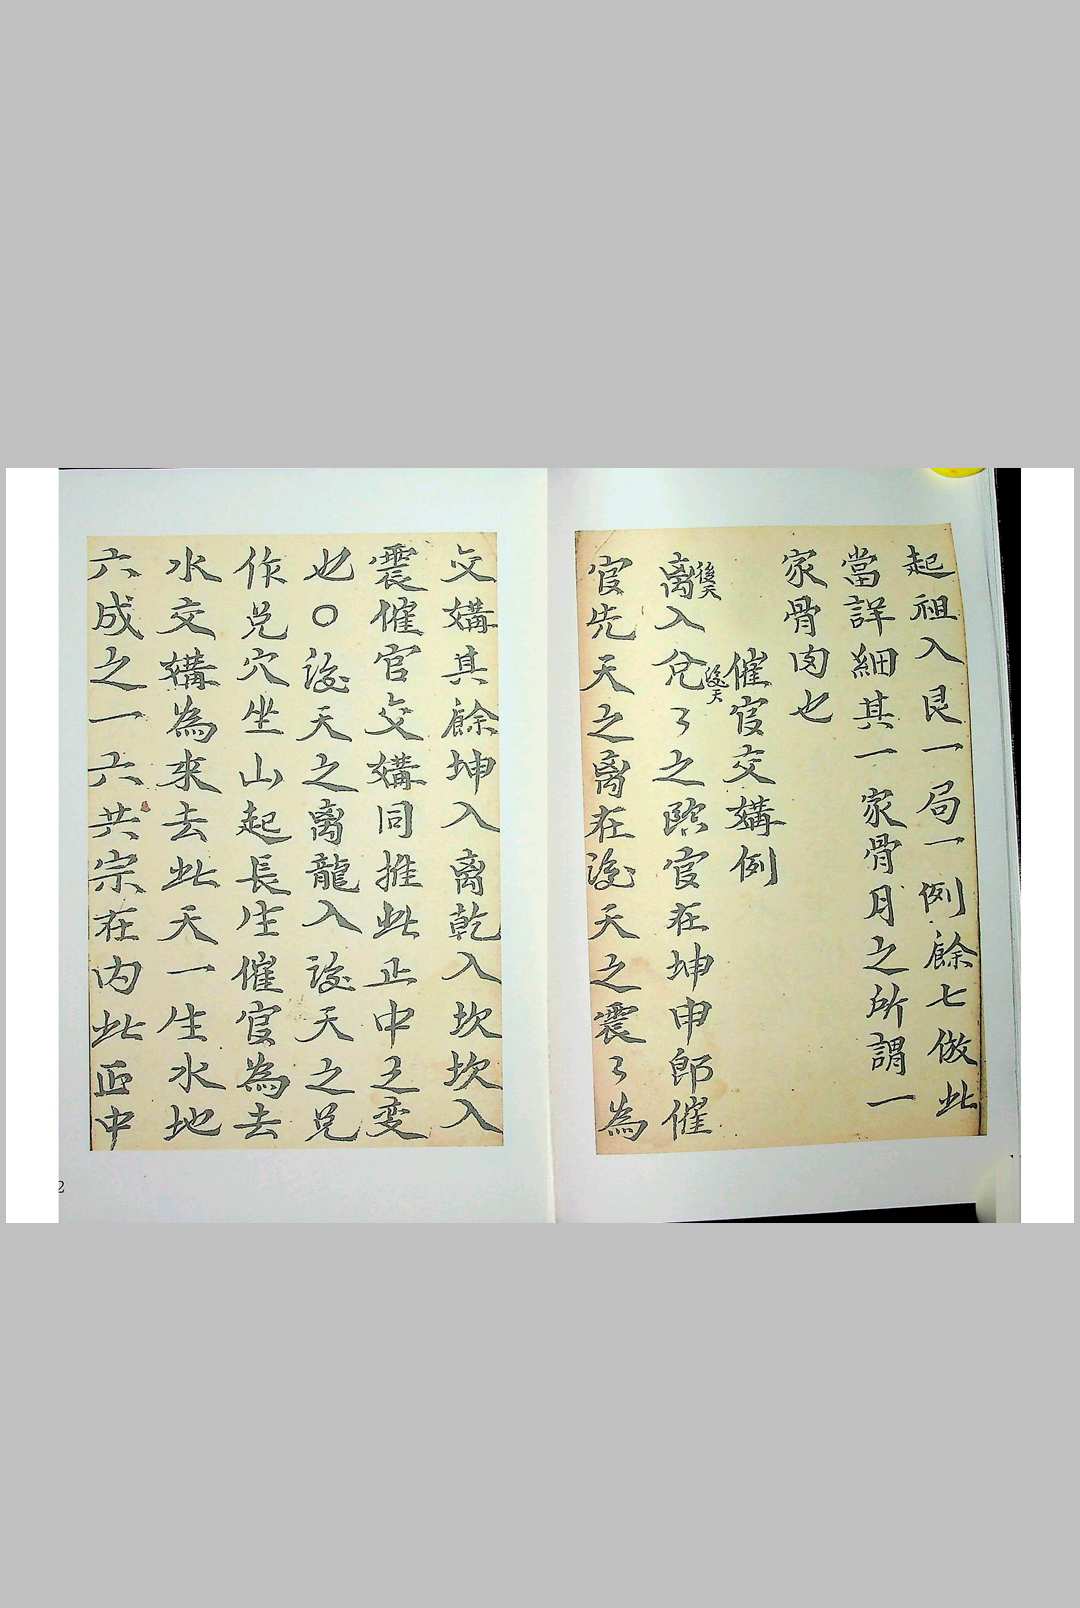 起祖入艮一局一例餘七倣此
當詳細其一家骨月之所謂一
家骨肉也
催官交媾例
後天
離入兌々之臨官在坤申即催
後天
官先天之离在後天之震々為
交媾其餘坤入离乾入坎坎入
震催官交媾同推此正中之变
也○後天之离龍入後天之兑
作兑穴坐山起長生催官為去
水交媾為來去此天一生水地
六成之一六共宗在内此正中
2